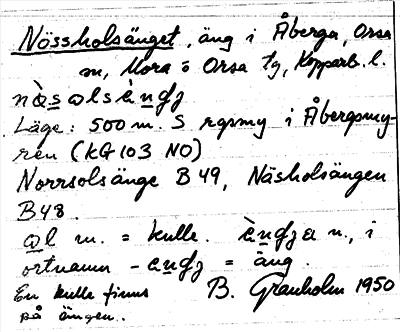 Nössholsänget, äng i Åberga, Orsa
sn, Mora o Orsa tg, Kopparb. l.
Läge: 500 m. S rgpmy i Åbergpmy-
ren (KG 103 NO)
Norrsolsänge B 49, Näsholsängen
B 48.
ɷl m. = kulle. n., i
ortnamn = äng.
En kulle finns B. Granholm 1950
på ängen.